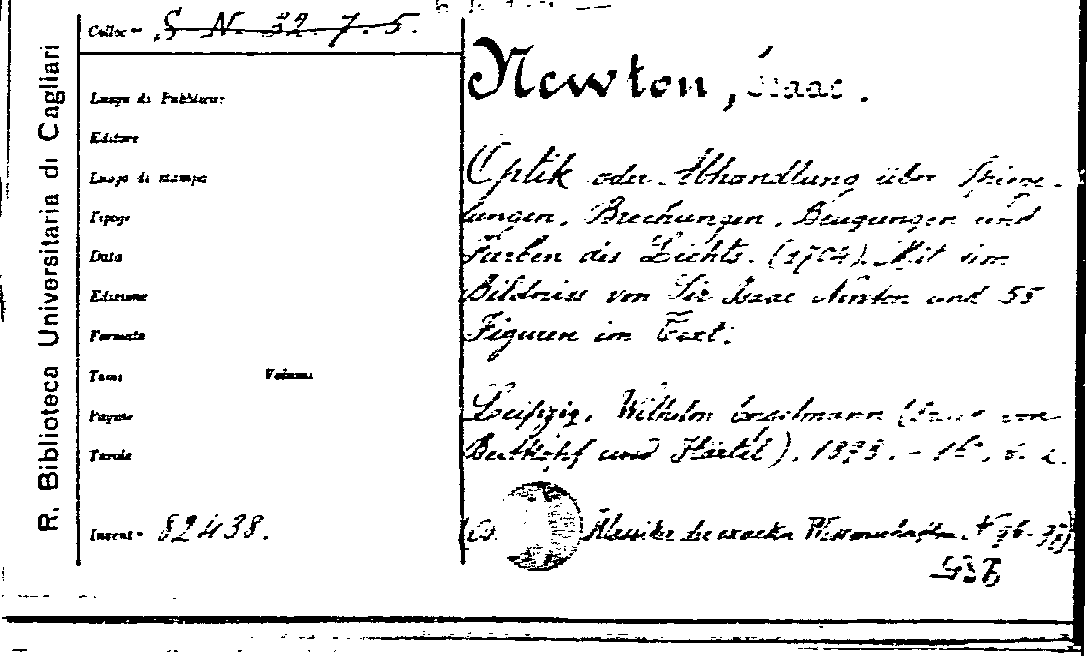 R. Biblioteca Universitaria di Cagliari
Colloc= S. N. 32. 7. 5.
Luogo di Pubblicaz:
Editore
Luogo di stampa
Tipogr
Data
Edizione
Formato
Tomi Volumi
Pagine
Tavole
Invent= 82438.
Newton, Isaac.
Optik oder Abhandlung über Spiege-
lungen, Brechungen, Beugungen und
Farben des Lichts. (1704). Mit dem
Bildniss von Sir Isaac Newton und 55
Figuren im Text.
Leipzig, Wilhelm Engelmann (Druck von
Breitkopf und Härtel). 1898. - 16°.
Klassiker der exacten Wissenschaften. N 96-97)